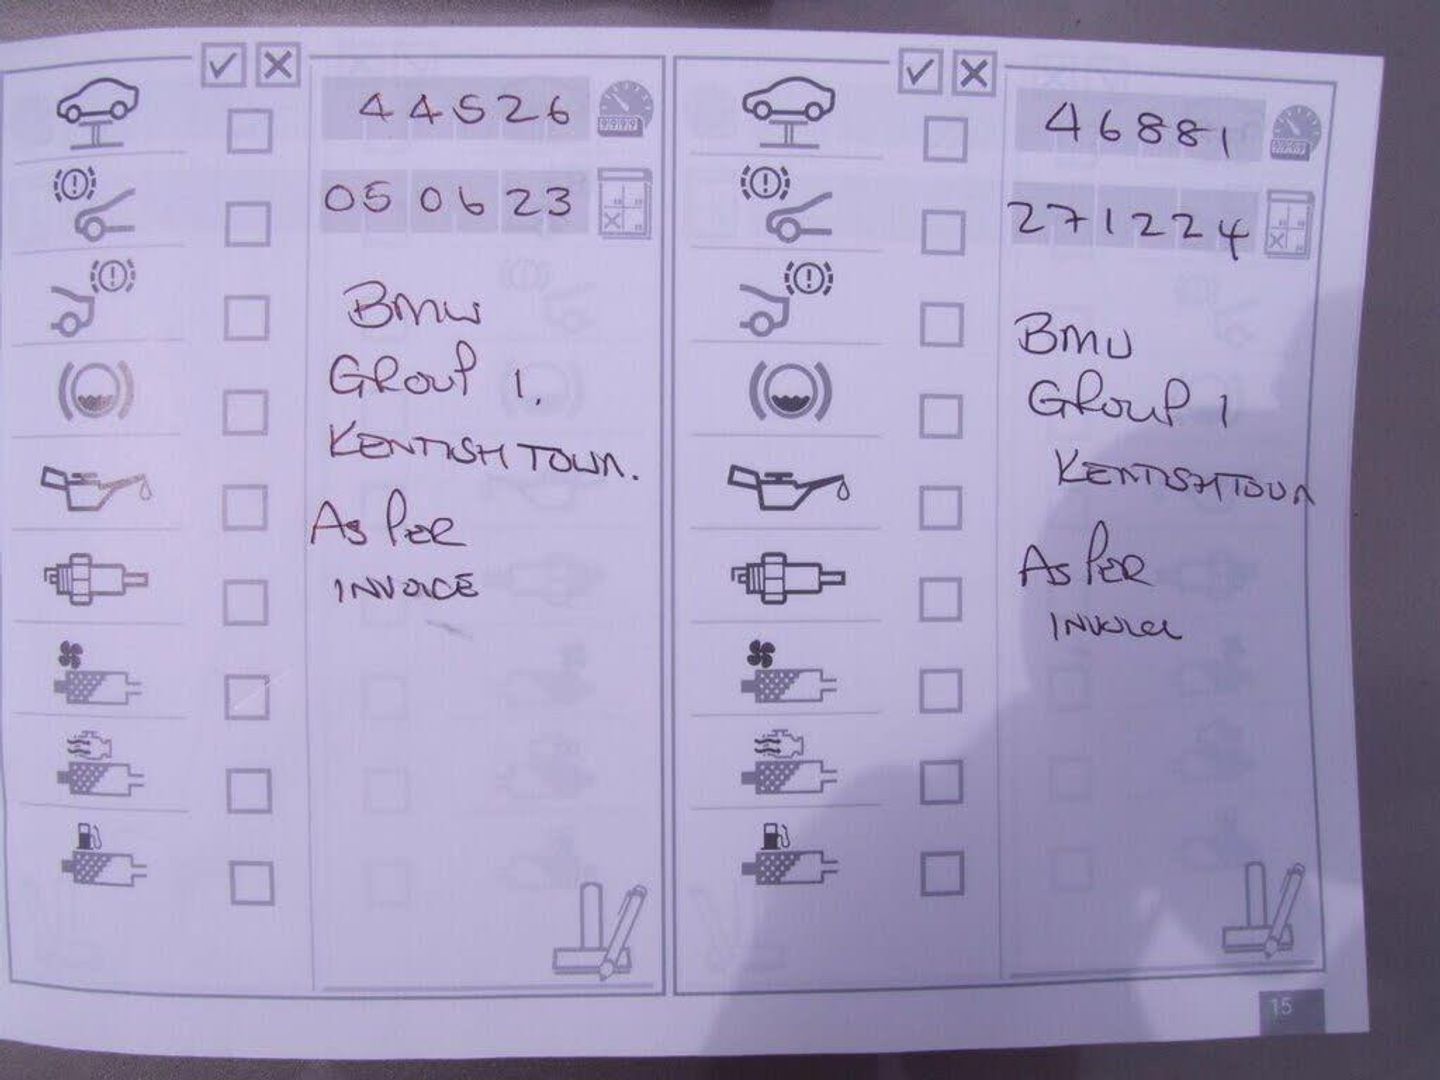 44526
050623
BMW
GROUP 1.
KENTISH TOWN.
AS PER
INVOICE
46881
271224
BMW
GROUP 1
KENTISH TOWN
AS PER
INVOICE
15